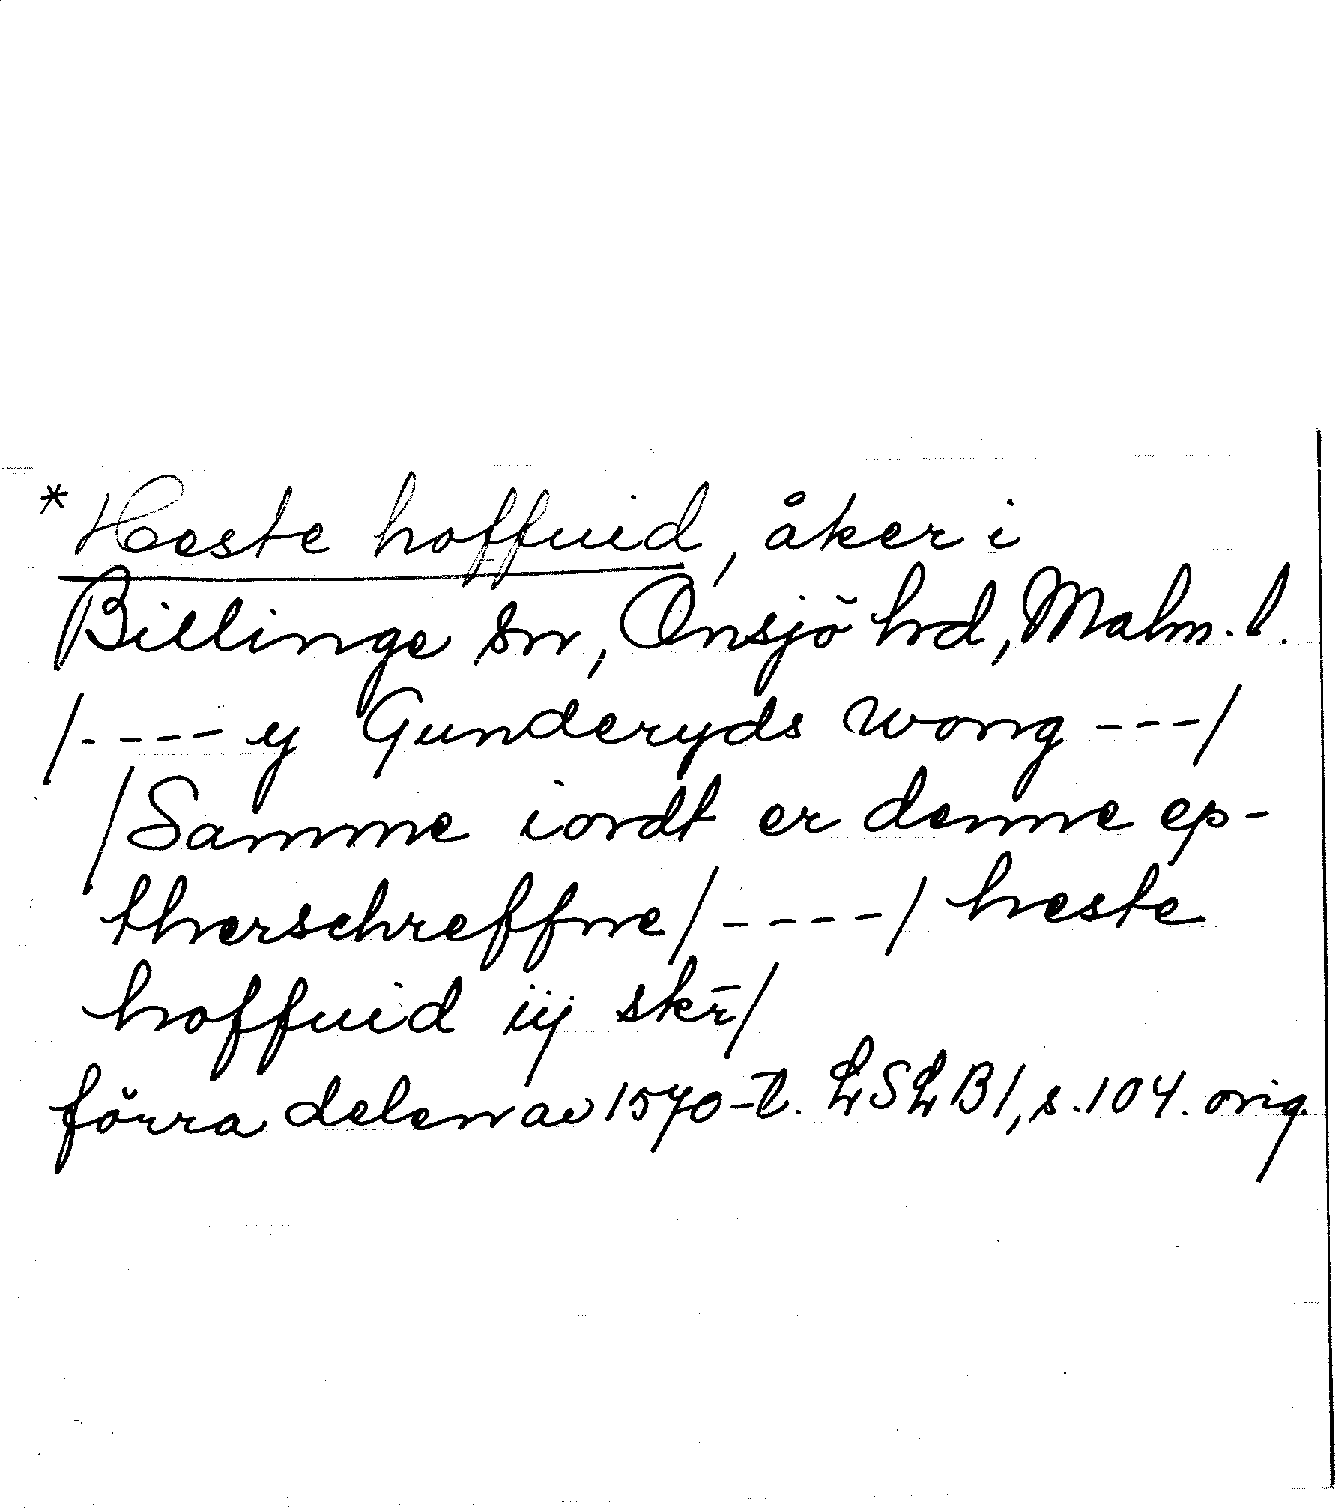 *Heste hoffuid, åker i
Billinge sn, Onsjö hd, Malm. l.
/---- y Gunderyds wong ---/
/Samme iordt er denne ep-
therschreffne/----/ heste
hoffuid iij skr̄/
förra delen av 1570-t. LSLB1, s. 104. orig.